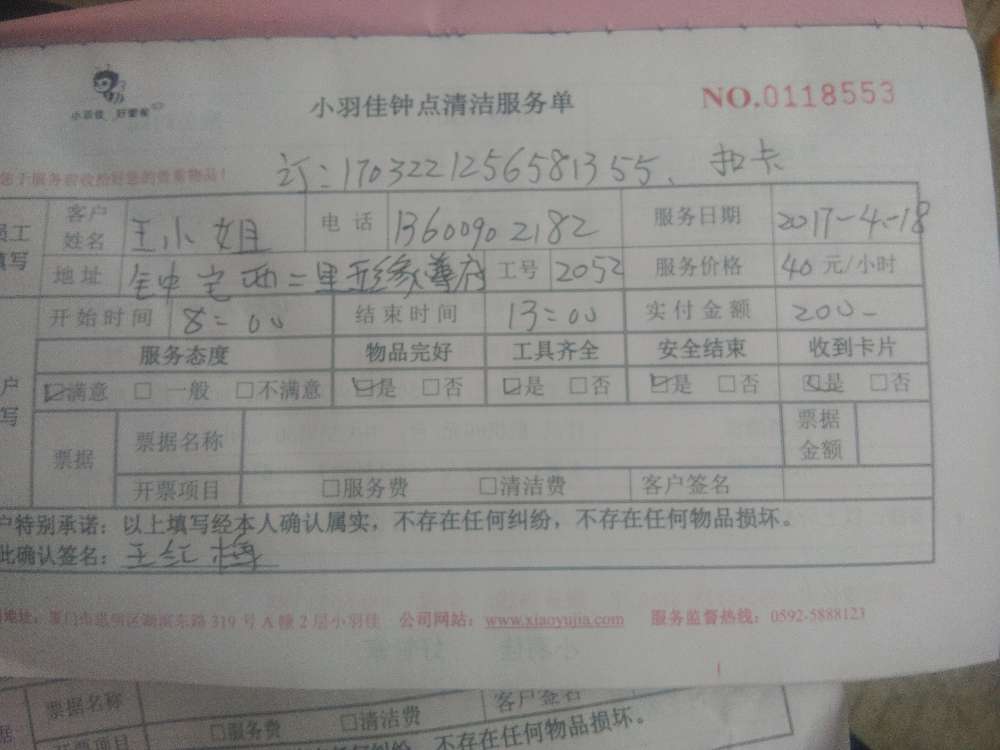 小羽佳 好管家
小羽佳钟点清洁服务单 NO.0118553
订:170322125658 1355、扣卡
员工填写 客户姓名 王小姐 电话 13600902182 服务日期 2017-4-18
地址 西二里 工号 2052 服务价格 40 元/小时
开始时间 8:00 结束时间 13:00 实付金额 200-
服务态度 物品完好 工具齐全 安全结束 收到卡片
户写 ☑满意 □ 一般 □不满意 ☑是 □否 ☑是 □否 ☑是 □否 ☑是 □否
票据 票据名称 票据金额
开票项目 □服务费 □清洁费 客户签名
户特别承诺:以上填写经本人确认属实,不存在任何纠纷,不存在任何物品损坏。
此确认签名:王红梅
地址:厦门市思明区湖滨东路 319 号 A 幢 2 层小羽佳 公司网站:www.xiaoyujia.com 服务监督热线:0592-5888123
票据名称 客户签名
据 开票项目 □服务费 □清洁费
不存在任何物品损坏。